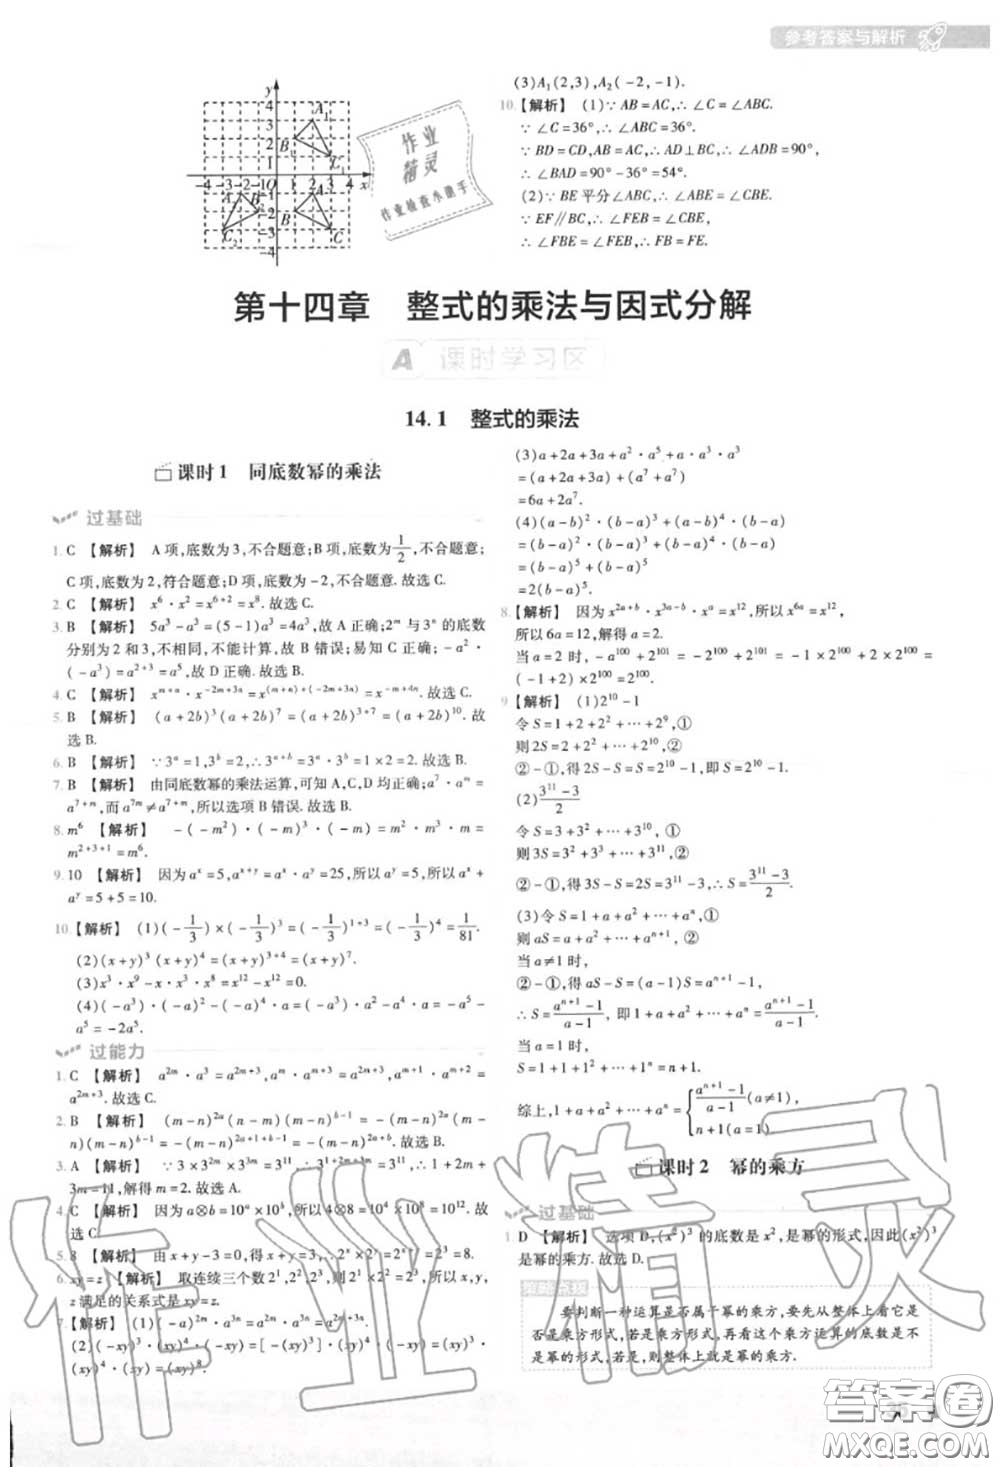 参考答案与解析
作业
精灵
作业检查小助手
(3)A₁(2,3),A₂(-2,-1).
10.【解析】 (1)∵AB=AC,∴∠C=∠ABC.
∵∠C=36°,∴∠ABC=36°.
∵BD=CD,AB=AC,∴AD⊥BC,∴∠ADB=90°,
∴∠BAD=90°-36°=54°.
(2)∵BE平分∠ABC,∴∠ABE=∠CBE.
∵EF∥BC,∴∠FEB=∠CBE,
∴∠FBE=∠FEB,∴FB=FE.
第十四章 整式的乘法与因式分解
A 课时学习区
14.1 整式的乘法
课时1 同底数幂的乘法
过基础
1.C 【解析】 A项,底数为3,不合题意;B项,底数为1/2,不合题意;
C项,底数为2,符合题意;D项,底数为-2,不合题意.故选C.
2.C 【解析】 x⁶·x²=x⁶⁺²=x⁸.故选C.
3.B 【解析】 5a³-a³=(5-1)a³=4a³,故A正确;2ᵐ与3ⁿ的底数
分别为2和3,不相同,不能计算,故B错误;易知C正确;-a²·
(-a³)=a²⁺³=a⁵,故D正确.故选B.
4.C 【解析】 x^(m+n)·x^(-2m+3n)=x^((m+n)+(-2m+3n))=x^(-m+4n).故选C.
5.B 【解析】 (a+2b)³(a+2b)⁷=(a+2b)³⁺⁷=(a+2b)¹⁰.故
选B.
6.B 【解析】 ∵3ᵃ=1,3ᵇ=2,∴3ᵃ⁺ᵇ=3ᵃ·3ᵇ=1×2=2.故选B.
7.B 【解析】 由同底数幂的乘法运算,可知A,C,D均正确;a⁷·aᵐ=
a⁷⁺ᵐ,而a⁷ᵐ≠a⁷⁺ᵐ,所以选项B错误.故选B.
8.m⁶ 【解析】 -(-m²)·(-m)³·(-m)=m²·m³·m=
m²⁺³⁺¹=m⁶.
9.10 【解析】 因为aˣ=5,aˣ⁺ʸ=aˣ·aʸ=25,所以aʸ=5,所以aˣ+
aʸ=5+5=10.
10.【解析】 (1)(-1/3)×(-1/3)³=(-1/3)¹⁺³=(-1/3)⁴=1/81.
(2)(x+y)³(x+y)⁴=(x+y)³⁺⁴=(x+y)⁷.
(3)x³·x⁹-x·x³·x⁸=x¹²-x¹²=0.
(4)(-a³)·(-a)²-(-a)⁴·a=(-a³)·a²-a⁴·a=-a⁵-
a⁵=-2a⁵.
过能力
1.C 【解析】 a²ᵐ·a³=a²ᵐ⁺³,a²ᵐ·a=a²ᵐ⁺¹,aᵐ⁺¹·aᵐ⁺²=
a²ᵐ⁺³.故选C.
2.B 【解析】 (m-n)²ᵃ(n-m)(m-n)ᵇ⁻¹=-(m-n)²ᵃ(m-
n)(m-n)ᵇ⁻¹=-(m-n)²ᵃ⁺¹⁺ᵇ⁻¹=-(m-n)²ᵃ⁺ᵇ.故选B.
5.8 【解析】 由x+y-3=0,得x+y=3,∴2ˣ×2ʸ=2ˣ⁺ʸ=2³=8.
6.xy=z 【解析】 取连续三个数2¹,2²,2³,则2¹×2²=2³,所以x,y,
z满足的关系式是xy=z.
7.【解析】 (1)(-a)²ⁿ·a³ⁿ=a²ⁿ·a³ⁿ=a⁵ⁿ.
(2)(-xy)³·(-xy)⁴·(-xy)=[-(xy)³]·(xy)⁴·
(xy)⁴·(xy)⁴=(xy)⁸.
(3)a+2a+3a+a²·a⁵+a·a³·a³
=(a+2a+3a)+(a⁷+a⁷)
=6a+2a⁷.
(4)(a-b)²·(b-a)³+(a-b)⁴·(b-a)
=(b-a)²·(b-a)³+(b-a)⁴·(b-a)
=(b-a)⁵+(b-a)⁵
=2(b-a)⁵.
8.【解析】 因为x²ᵃ⁺ᵇ·x³ᵃ⁻ᵇ·xᵃ=x¹²,所以x⁶ᵃ=x¹²,
所以6a=12,解得a=2.
当a=2时,-a¹⁰⁰+2¹⁰¹=-2¹⁰⁰+2¹⁰¹=-1×2¹⁰⁰+2×2¹⁰⁰=
(-1+2)×2¹⁰⁰=2¹⁰⁰.
9【解析】 (1)2¹⁰-1
令S=1+2+2²+⋯+2⁹,①
则2S=2+2²+⋯+2¹⁰,②
②-①,得2S-S=2¹⁰-1,即S=2¹⁰-1.
(2)(3¹¹-3)/2
令S=3+3²+⋯+3¹⁰,①
则3S=3²+3³+⋯+3¹¹,②
②-①,得3S-S=3¹¹-3,∴S=(3¹¹-3)/2.
(3)令S=1+a+a²+⋯+aⁿ,①
则aS=a+a²+⋯+aⁿ⁺¹,②
当a≠1时,
②-①,得aS-S=(a-1)S=aⁿ⁺¹-1,
∴S=(aⁿ⁺¹-1)/(a-1),即1+a+a²+⋯+aⁿ=(aⁿ⁺¹-1)/(a-1).
当a=1时,
S=1+1+1²+⋯+1ⁿ=n+1.
综上,1+a+a²+⋯+aⁿ={(aⁿ⁺¹-1)/(a-1)(a≠1),
n+1(a=1)
课时2 幂的乘方
过基础
1.D 【解析】 选项D,(x²)³的底数是x²,是幂的形式,因此(x²)³
是幂的乘方.故选D.
要判断一种运算是否属于幂的乘方,要先从整体上看它是
否是乘方形式,若是乘方形式,再看这个乘方运算的底数是不
是幂的形式,若是,则整体上就是幂的乘方.
作业精灵
答案圈
MXQE.COM